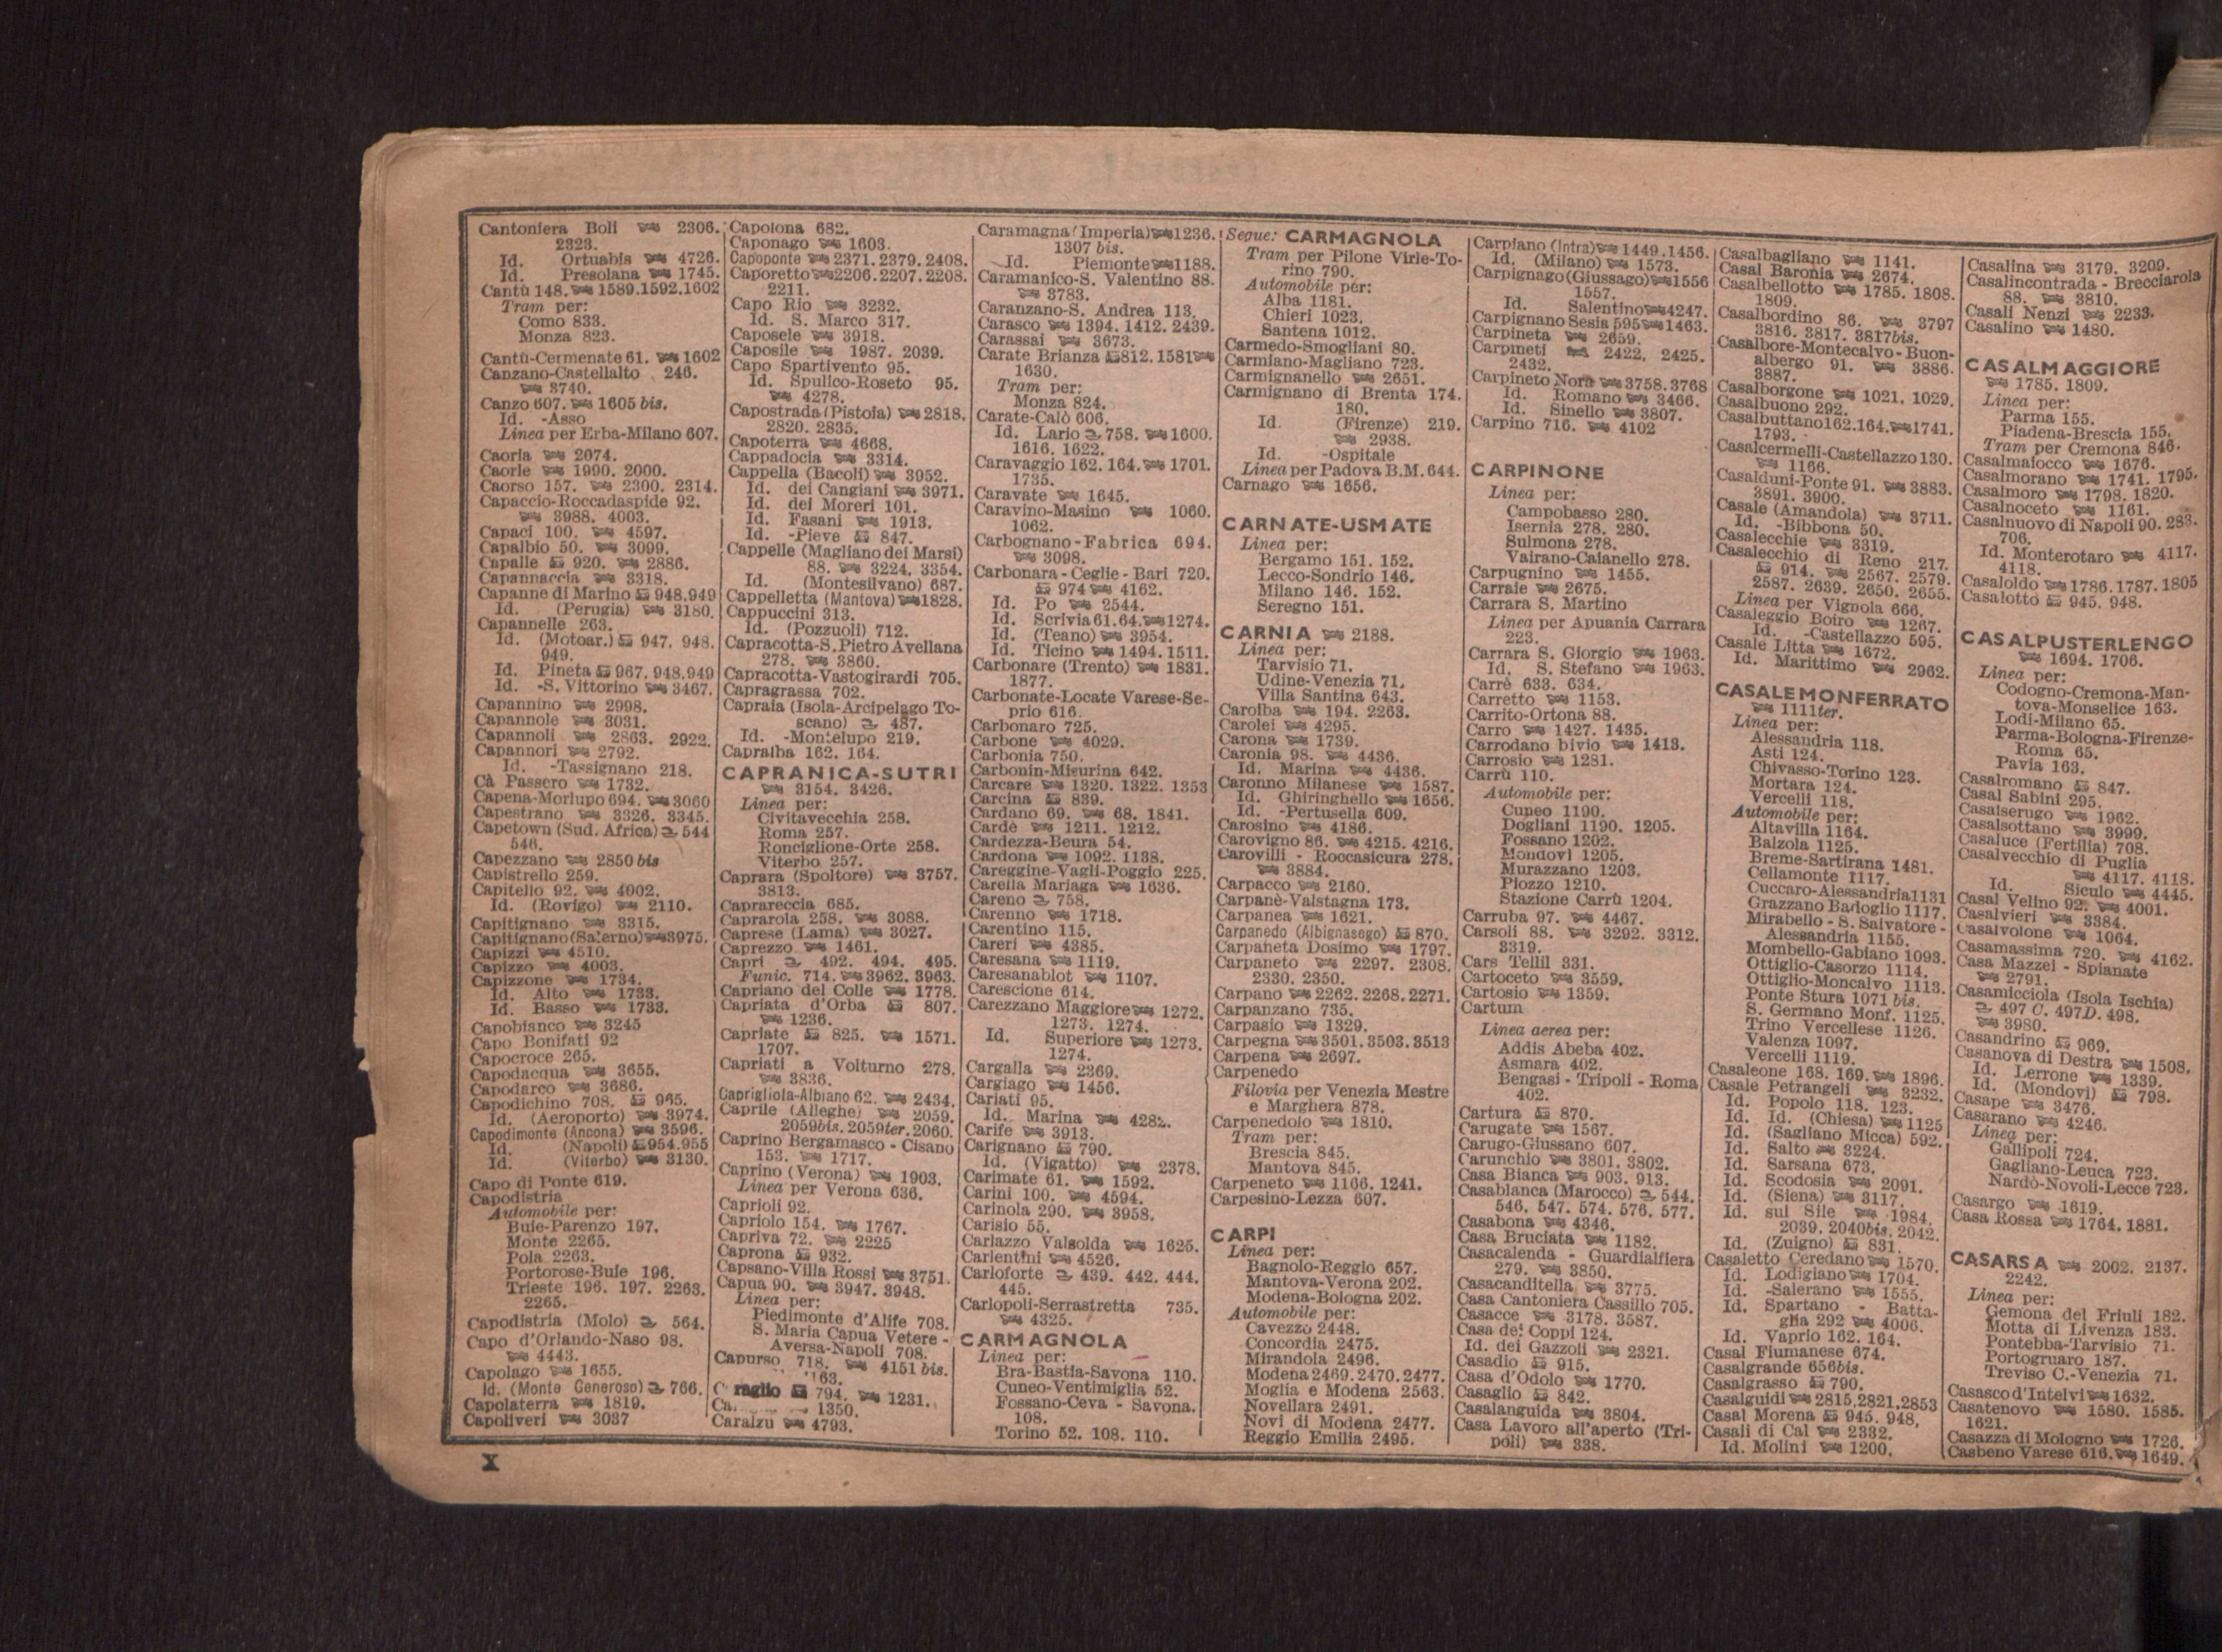 Cantoniera Boli 2306.
2323.
Id. Ortuabis 4726.
Id. Presolana 1745.
Cantù 148. 1589.1592.1602
Tram per:
Como 833.
Monza 823.
Cantù-Cermenate 61. 1602
Canzano-Castellalto 246.
3740.
Canzo 607. 1605 bis.
Id. -Asso
Linea per Erba-Milano 607.
Caoria 2074.
Caorle 1990. 2000.
Caorso 157. 2300. 2314.
Capaccio-Roccadaspide 92.
3988. 4003.
Capaci 100. 4597.
Capalbio 50. 3099.
Capalle 920. 2886.
Capannaccia 3318.
Capanne di Marino 948.949
Id. (Perugia) 3180.
Capannelle 263.
Id. (Motoar.) 947. 948.
949.
Id. Pineta 967. 948.949
Id. -S. Vittorino 3467.
Capannino 2998.
Capannole 3031.
Capannoli 2863. 2922.
Capannori 2792.
Id. -Tassignano 218.
Cà Passero 1732.
Capena-Morlupo 694. 3060
Capestrano 3326. 3345.
Capetown (Sud. Africa) 544
546.
Capezzano 2850 bis
Capistrello 259.
Capitello 92. 4002.
Id. (Rovigo) 2110.
Capitignano 3315.
Capitignano (Salerno) 3975.
Capizzi 4510.
Capizzo 4003.
Capizzone 1734.
Id. Alto 1733.
Id. Basso 1733.
Capobianco 3245
Capo Bonifati 92
Capocroce 265.
Capodacqua 3655.
Capodarco 3686.
Capodichino 708. 965.
Id. (Aeroporto) 3974.
Capodimonte (Ancona) 3596.
Id. (Napoli) 954.955
Id. (Viterbo) 3130.
Capo di Ponte 619.
Capodistria
Automobile per:
Buie-Parenzo 197.
Monte 2265.
Pola 2263.
Portorose-Buie 196.
Trieste 196. 197. 2263.
2265.
Capodistria (Molo) 564.
Capo d'Orlando-Naso 98.
4443.
Capolago 1655.
Id. (Monte Generoso) 766.
Capolaterra 1819.
Capoliveri 3037
Capolona 682.
Caponago 1603.
Capoponte 2371. 2379. 2408.
Caporetto 2206. 2207. 2208.
2211.
Capo Rio 3232.
Id. S. Marco 317.
Caposele 3918.
Caposile 1987. 2039.
Capo Spartivento 95.
Id. Spulico-Roseto 95.
4278.
Capostrada (Pistoia) 2818.
2820. 2835.
Capoterra 4668.
Cappadocia 3314.
Cappella (Bacoli) 3952.
Id. dei Cangiani 3971.
Id. dei Moreri 101.
Id. Fasani 1913.
Id. -Pieve 847.
Cappelle (Magliano dei Marsi)
88. 3224. 3354.
Id. (Montesilvano) 687.
Cappelletta (Mantova) 1828.
Cappuccini 313.
Id. (Pozzuoli) 712.
Capracotta-S. Pietro Avellana
278. 3860.
Capracotta-Vastogirardi 705.
Capragrassa 702.
Capraia (Isola-Arcipelago To-
scano) 487.
Id. -Montelupo 219.
Capralba 162. 164.
CAPRANICA-SUTRI
3154. 3426.
Linea per:
Civitavecchia 258.
Roma 257.
Ronciglione-Orte 258.
Viterbo 257.
Caprara (Spoltore) 3757.
3813.
Caprareccia 685.
Caprarola 258. 3088.
Caprese (Lama) 3027.
Caprezzo 1461.
Capri 492. 494. 495.
Funic. 714. 3962. 3963.
Capriano del Colle 1778.
Capriata d'Orba 807.
1236.
Capriate 825. 1571.
1707.
Capriati a Volturno 278.
3836.
Caprigliola-Albiano 62. 2434.
Caprile (Alleghe) 2059.
2059bis. 2059ter. 2060.
Caprino Bergamasco - Cisano
153. 1717.
Caprino (Verona) 1903.
Linea per Verona 636.
Caprioli 92.
Capriolo 154. 1767.
Capriva 72. 2225
Caprona 932.
Capsano-Villa Rossi 3751.
Capua 90. 3947. 3948.
Linea per:
Piedimonte d'Alife 708.
S. Maria Capua Vetere -
Aversa-Napoli 708.
Capurso 718. 4151 bis.
163.
raglio 794. 1231.
Ca 1350.
Caralzu 4793.
Caramagna (Imperia) 1236.
1307 bis.
Id. Piemonte 1188.
Caramanico-S. Valentino 88.
3783.
Caranzano-S. Andrea 113.
Carasco 1394. 1412. 2439.
Carassai 3673.
Carate Brianza 812. 1581
1630.
Tram per:
Monza 824.
Carate-Calò 606.
Id. Lario 758. 1600.
1616. 1622.
Caravaggio 162. 164. 1701.
1735.
Caravate 1645.
Caravino-Masino 1060.
1062.
Carbognano-Fabrica 694.
3098.
Carbonara - Ceglie - Bari 720.
974 4162.
Id. Po 2544.
Id. Scrivia 61. 64. 1274.
Id. (Teano) 3954.
Id. Ticino 1494. 1511.
Carbonare (Trento) 1831.
1877.
Carbonate-Locate Varese-Se-
prio 616.
Carbonaro 725.
Carbone 4029.
Carbonia 750.
Carbonin-Misurina 642.
Carcare 1320. 1322. 1353
Carcina 839.
Cardano 69. 68. 1841.
Cardè 1211. 1212.
Cardezza-Beura 54.
Cardona 1092. 1138.
Careggine-Vagli-Poggio 225.
Carella Mariaga 1636.
Careno 758.
Carenno 1718.
Carentino 115.
Careri 4385.
Caresana 1119.
Caresanablot 1107.
Carescione 614.
Carezzano Maggiore 1272.
1273. 1274.
Id. Superiore 1273.
1274.
Cargalla 2369.
Cargiago 1456.
Cariati 95.
Id. Marina 428
Carife 3913.
Carignano 790.
Id. (Vigatto) 2378.
Carimate 61. 1592.
Carini 100. 4594.
Carinola 290. 3958.
Carisio 55.
Carlazzo Valsolda 1625.
Carlentini 4526.
Carloforte 439. 442. 444.
445.
Carlopoli-Serrastretta 735.
4325.
CARMAGNOLA
Linea per:
Bra-Bastia-Savona 110.
Cuneo-Ventimiglia 52.
Fossano-Ceva - Savona.
108.
Torino 52. 108. 110.
Segue: CARMAGNOLA
Tram per Pilone Virle-To-
rino 790.
Automobile per:
Alba 1181.
Chieri 1023.
Santena 1012.
Carmedo-Smogliani 80.
Carmiano-Magliano 723.
Carmignanello 2651.
Carmignano di Brenta 174.
180.
Id. (Firenze) 219.
2938.
Id. -Ospitale
Linea per Padova B.M. 644.
Carnago 1656.
CARNATE-USMATE
Linea per:
Bergamo 151. 152.
Lecco-Sondrio 146.
Milano 146. 152.
Seregno 151.
CARNIA 2188.
Linea per:
Tarvisio 71.
Udine-Venezia 71.
Villa Santina 643.
Caroiba 194. 2263.
Carolei 4295.
Carona 1739.
Caronia 98. 4436.
Id. Marina 4436.
Caronno Milanese 1587.
Id. Ghiringhello 1656.
Id. -Pertusella 609.
Carosino 4186.
Carovigno 86. 4215. 4216.
Carovilli - Roccasicura 278.
3884.
Carpacco 2160.
Carpanè-Valstagna 173.
Carpanea 1621.
Carpanedo (Albignasego) 870.
Carpaneta Dosimo 1797.
Carpaneto 2297. 2308.
2330. 2350.
Carpano 2262. 2268. 2271.
Carpanzano 735.
Carpasio 1329.
Carpegna 3501. 3503. 3513
Carpena 2697.
Carpenedo
Filovia per Venezia Mestre
e Marghera 878.
Carpenedolo 1810.
Tram per:
Brescia 845.
Mantova 845.
Carpeneto 1166. 1241.
Carpesino-Lezza 607.
CARPI
Linea per:
Bagnolo-Reggio 657.
Mantova-Verona 202.
Modena-Bologna 202.
Automobile per:
Cavezzo 2448.
Concordia 2475.
Mirandola 2496.
Modena 2469. 2470. 2477.
Moglia e Modena 2563.
Novellara 2491.
Novi di Modena 2477.
Reggio Emilia 2495.
Carpiano (Intra) 1449. 1456.
Id. (Milano) 1573.
Carpignago (Giussago) 1556
1557.
Id. Salentino 4247.
Carpignano Sesia 595 1463.
Carpineta 2659.
Carpineti 2422. 2425.
2432.
Carpineto Nora 3758. 3768
Id. Romano 3466.
Id. Sinello 3807.
Carpino 716. 4102
CARPINONE
Linea per:
Campobasso 280.
Isernia 278. 280.
Sulmona 278.
Vairano-Caianello 278.
Carpugnino 1455.
Carraie 2675.
Carrara S. Martino
Linea per Apuania Carrara
223.
Carrara S. Giorgio 1963.
Id. S. Stefano 1963.
Carrè 633. 634.
Carretto 1153.
Carrito-Ortona 88.
Carro 1427. 1435.
Carrodano bivio 1413.
Carrosio 1281.
Carrù 110.
Automobile per:
Cuneo 1190.
Dogliani 1190. 1205.
Fossano 1202.
Mondovì 1205.
Murazzano 1203.
Piozzo 1210.
Stazione Carrù 1204.
Carruba 97. 4467.
Carsoli 88. 3292. 3312.
3319.
Cars Tellil 331.
Cartoceto 3559.
Cartosio 1359.
Cartum
Linea aerea per:
Addis Abeba 402.
Asmara 402.
Bengasi - Tripoli - Roma
402.
Cartura 870.
Carugate 1567.
Carugo-Giussano 607.
Carunchio 3801. 3802.
Casa Bianca 903. 913.
Casablanca (Marocco) 544.
546. 547. 574. 576. 577.
Casabona 4346.
Casa Bruciata 1182.
Casacalenda - Guardialfiera
279. 3850.
Casacanditella 3775.
Casa Cantoniera Cassillo 705.
Casacce 3178. 3587.
Casa dei Coppi 124.
Id. dei Gazzoli 2321.
Casadio 915.
Casa d'Odolo 1770.
Casaglio 842.
Casalanguida 3804.
Casa Lavoro all'aperto (Tri-
poli) 338.
Casalbagliano 1141.
Casal Baronia 2674.
Casalbellotto 1785. 1808.
1809.
Casalbordino 86. 3797
3816. 3817. 3817bis.
Casalbore-Montecalvo - Buon-
albergo 91. 3886.
3887.
Casalborgone 1021. 1029.
Casalbuono 292.
Casalbuttano 162.164. 1741.
1793.
Casalcermelli-Castellazzo 130.
1166.
Casalduni-Ponte 91. 3883.
3891. 3900.
Casale (Amandola) 3711.
Id. -Bibbona 50.
Casalecchie 3319.
Casalecchio di Reno 217.
914. 2567. 2579.
2587. 2639. 2650. 2655.
Linea per Vignola 666.
Casaleggio Boiro 1267.
Id. -Castellazzo 595.
Casale Litta 1672.
Id. Marittimo 2962.
CASALE MONFERRATO
1111ter.
Linea per:
Alessandria 118.
Asti 124.
Chivasso-Torino 123.
Mortara 124.
Vercelli 118.
Automobile per:
Altavilla 1164.
Balzola 1125.
Breme-Sartirana 1481.
Cellamonte 1117.
Cuccaro-Alessandria 1131
Grazzano Badoglio 1117.
Mirabello - S. Salvatore -
Alessandria 1155.
Mombello-Gabiano 1093.
Ottiglio-Casorzo 1114.
Ottiglio-Moncalvo 1113.
Ponte Stura 1071 bis.
S. Germano Monf. 1125.
Trino Vercellese 1126.
Valenza 1097.
Vercelli 1119.
Casaleone 168. 169. 1896.
Casale Petrangeli 3232.
Id. Popolo 118. 123.
Id. Id. (Chiesa) 1125
Id. (Sagliano Micca) 592.
Id. Salto 3224.
Id. Sarsana 673.
Id. Scodosia 2091.
Id. (Siena) 3117.
Id. sul Sile 1984.
2039. 2040bis. 2042.
Id. (Zuigno) 831.
Casaletto Ceredano 1570.
Id. Lodigiano 1704.
Id. -Salerano 1555.
Id. Spartano - Batta-
glia 292 4006.
Id. Vaprio 162. 164.
Casal Fiumanese 674.
Casalgrande 656bis.
Casalgrasso 790.
Casalguidi 2815.2821.2853
Casal Morena 945. 948.
Casali di Cal 2332.
Id. Molini 1200.
Casalina 3179. 3209.
Casalincontrada - Brecciarola
88. 3810.
Casali Nenzi 2233.
Casalino 1480.
CASALMAGGIORE
1785. 1809.
Linea per:
Parma 155.
Piadena-Brescia 155.
Tram per Cremona 846.
Casalmaiocco 1676.
Casalmorano 1741. 1795.
Casalmoro 1798. 1820.
Casalnoceto 1161.
Casalnuovo di Napoli 90. 283.
706.
Id. Monterotaro 4117.
4118.
Casaloldo 1786. 1787. 1805
Casalotto 945. 948.
CASALPUSTERLENGO
1694. 1706.
Linea per:
Codogno-Cremona-Man-
tova-Monselice 163.
Lodi-Milano 65.
Parma-Bologna-Firenze-
Roma 65.
Pavia 163.
Casalromano 847.
Casal Sabini 295.
Casalserugo 1962.
Casalsottano 3999.
Casaluce (Fertilia) 708.
Casalvecchio di Puglia
4117. 4118.
Id. Siculo 4445.
Casal Velino 92. 4001.
Casalvieri 3384.
Casalvolone 1064.
Casamassima 720. 4162.
Casa Mazzei - Spianate
2791.
Casamicciola (Isola Ischia)
497 C. 497D. 498.
3980.
Casandrino 969.
Casanova di Destra 1508.
Id. Lerrone 1339.
Id. (Mondovì) 798.
Casape 3476.
Casarano 4246.
Linea per:
Gallipoli 724.
Gagliano-Leuca 723.
Nardò-Novoli-Lecce 723.
Casargo 1619.
Casa Rossa 1764. 1881.
CASARSA 2002. 2137.
2242.
Linea per:
Gemona del Friuli 182.
Motta di Livenza 183.
Pontebba-Tarvisio 71.
Portogruaro 187.
Treviso C.-Venezia 71.
Casasco d'Intelvi 1632.
Casatenovo 1580. 1585.
1621.
Casazza di Mologno 1726.
Casbeno Varese 616. 1649.
X